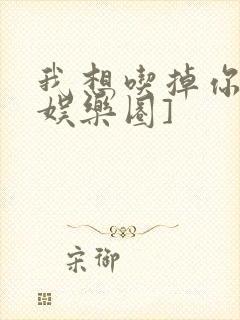 我想喫掉你
娛樂圈]
宋御